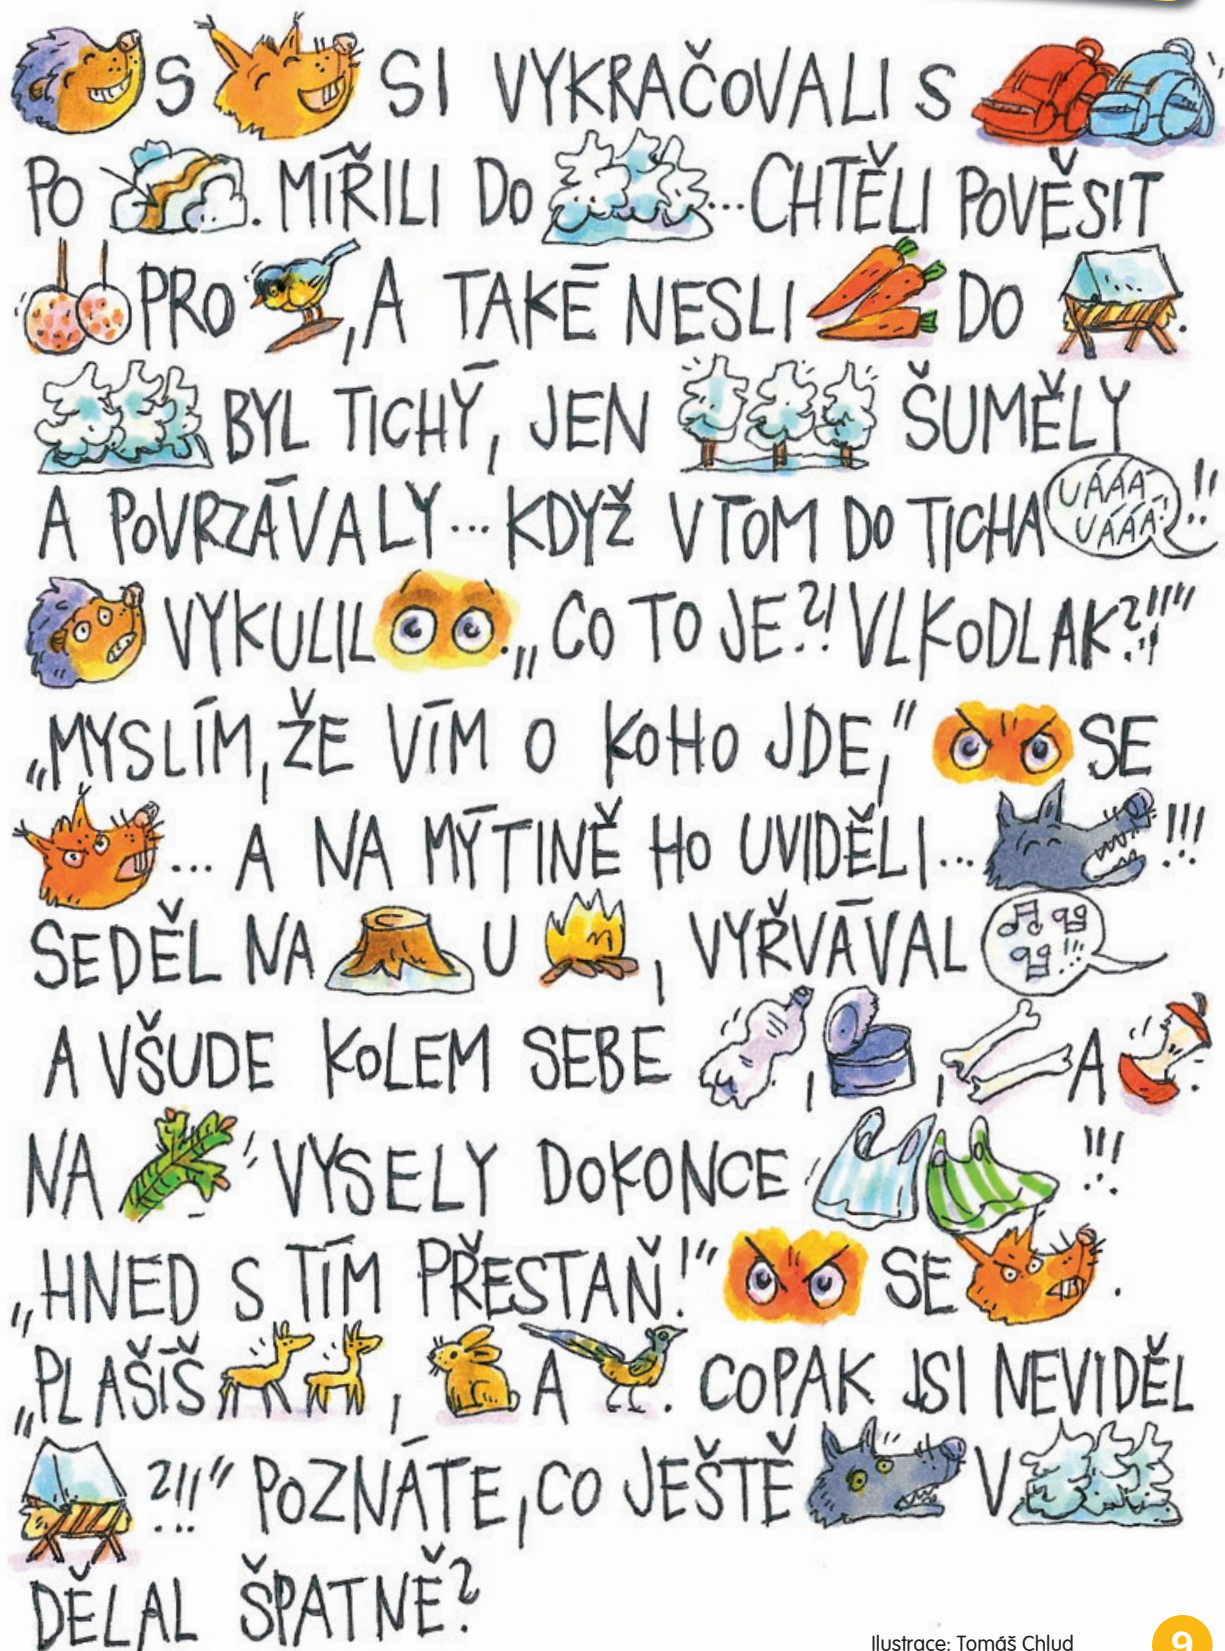 S SI VYKRAČOVALI S
PO . MÍŘILI DO ...CHTĚLI POVĚSIT
PRO , A TAKÉ NESLI DO .
BYL TICHÝ, JEN ŠUMĚLY
A POVRZÁVALY... KDYŽ VTOM DO TICHA UÁÁÁ UÁÁÁ!!!
VYKULIL . „CO TO JE?! VLKODLAK?!!"
„MYSLÍM, ŽE VÍM O KOHO JDE," SE
... A NA MÝTINĚ HO UVIDĚLI... !!!
SEDĚL NA U , VYŘVÁVAL !!!
A VŠUDE KOLEM SEBE , , A .
NA VYSELY DOKONCE !!!
„HNED S TÍM PŘESTAŇ!" SE .
„PLAŠÍŠ , A . COPAK JSI NEVIDĚL
?!!" POZNÁTE, CO JEŠTĚ V
DĚLAL ŠPATNĚ?
Ilustrace: Tomáš Chlud
9